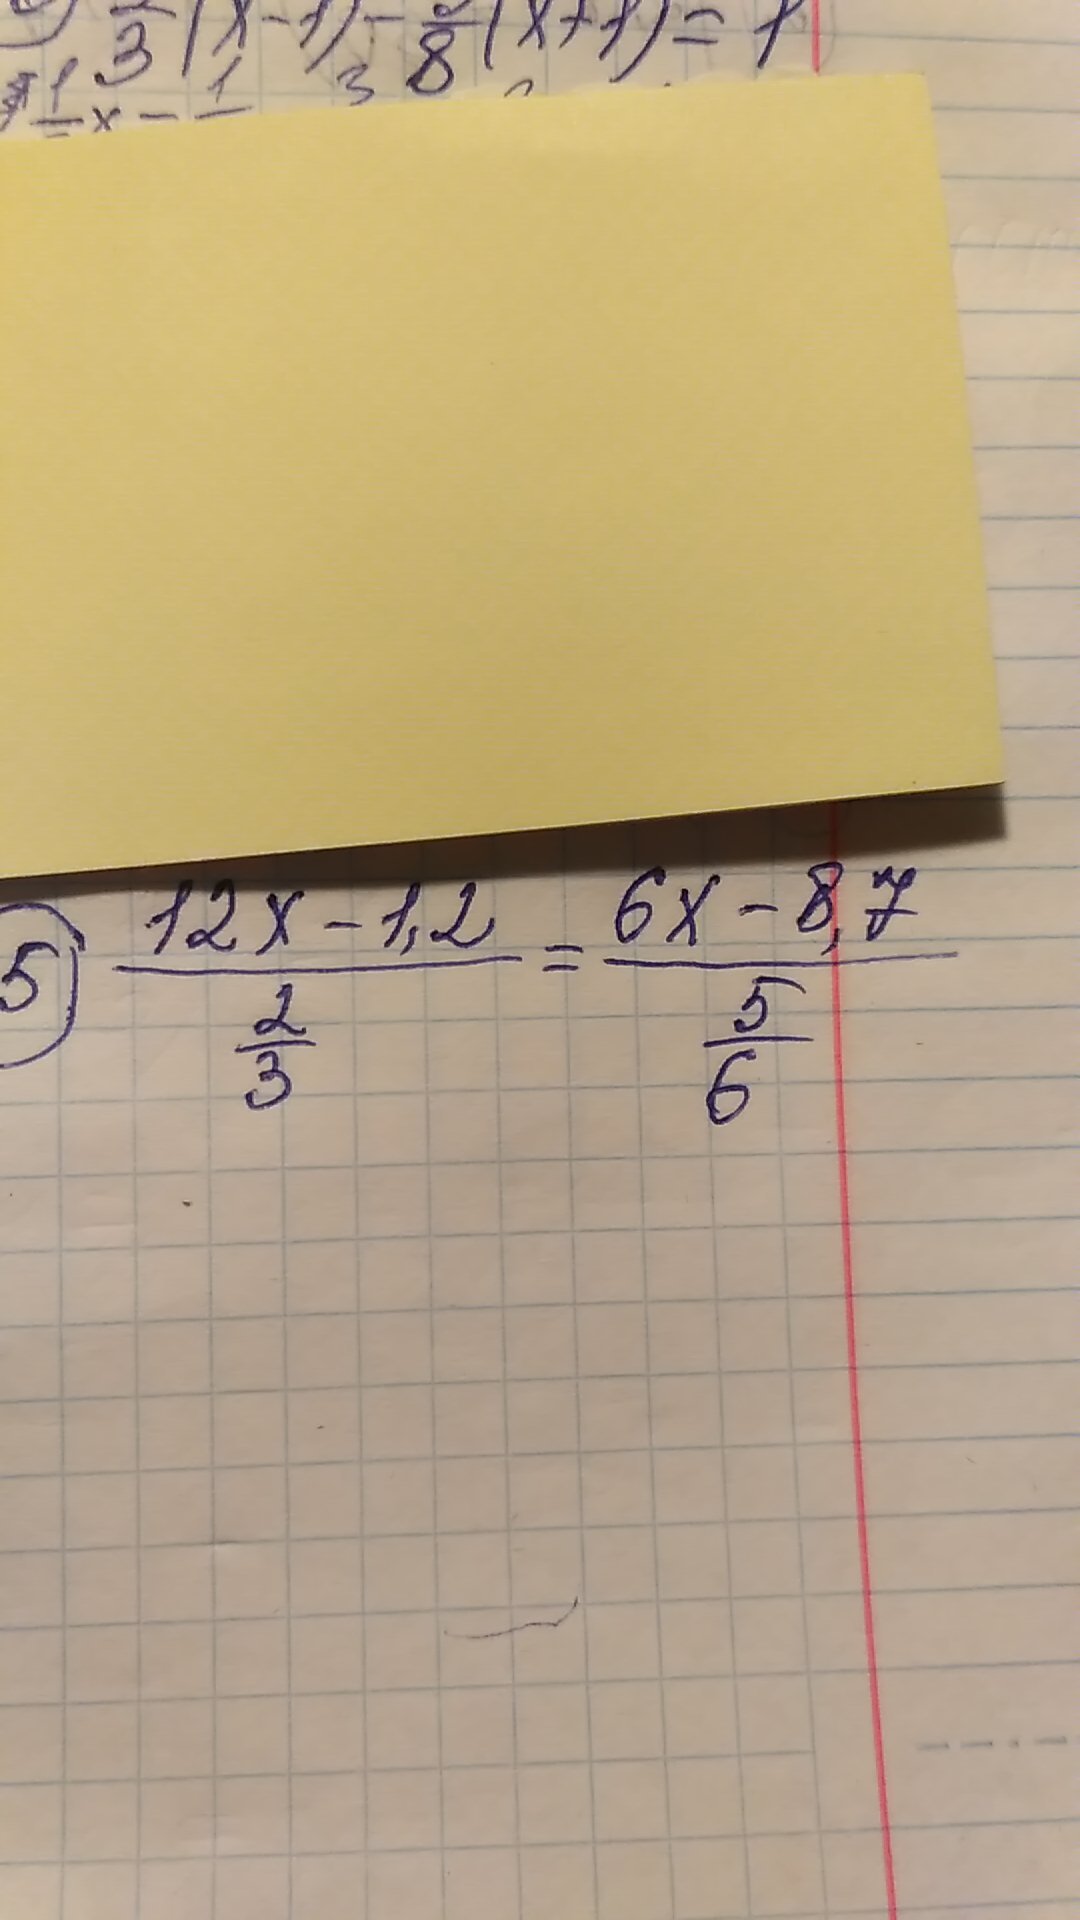 2/3 (x-1) - 5/8 (x+1) = 1
x -
5) (12x - 1,2)/(2/3) = (6x - 8,7)/(5/6)